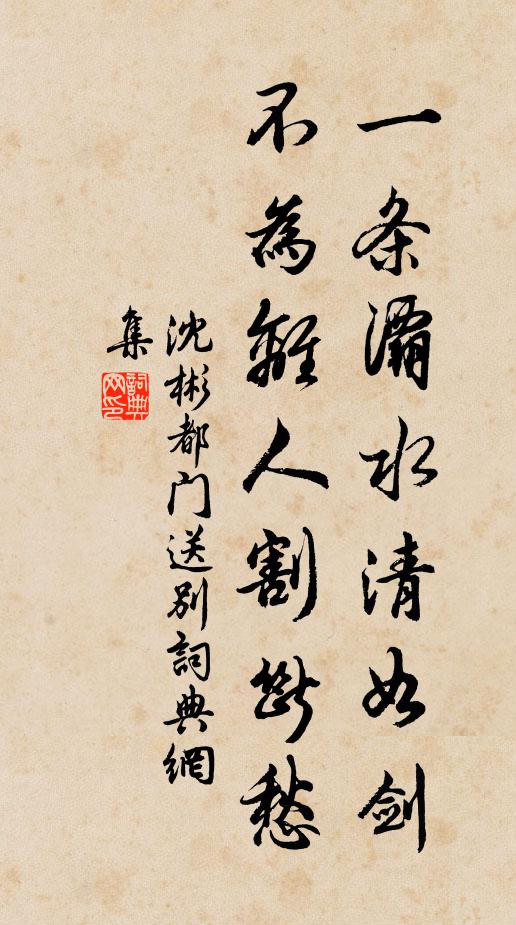 一条灞水清如剑
不為離人割断愁
沈彬都门送别詞典網
集
詞典
网印